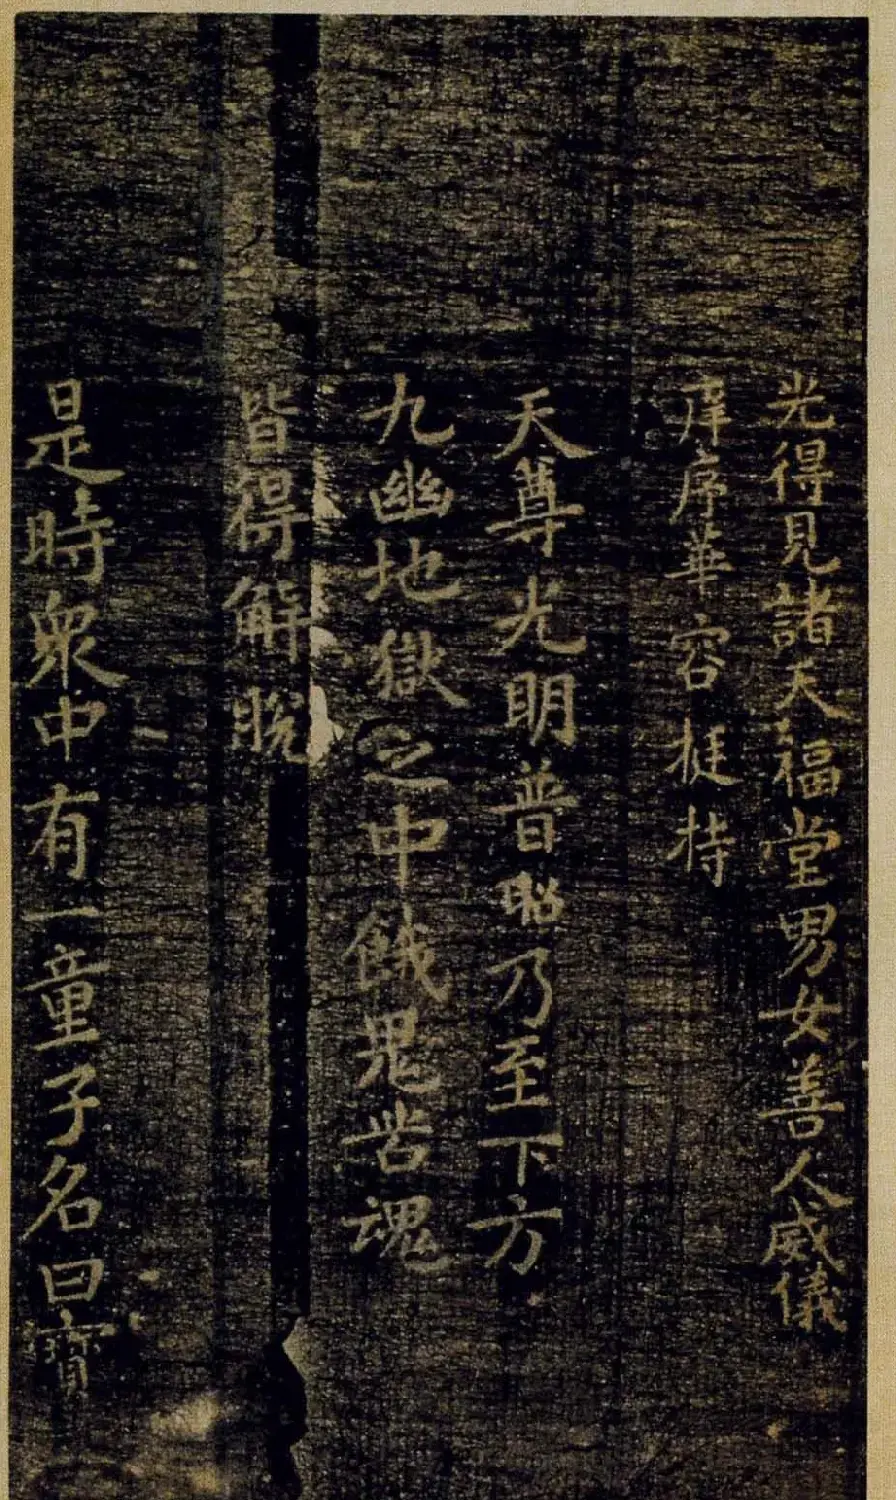 光得見諸天福堂男女善人威儀
庠序華容挺特
天尊光明普照乃至下方
九幽地獄之中餓鬼苦魂
皆得解脫
是時眾中有一童子名曰寶